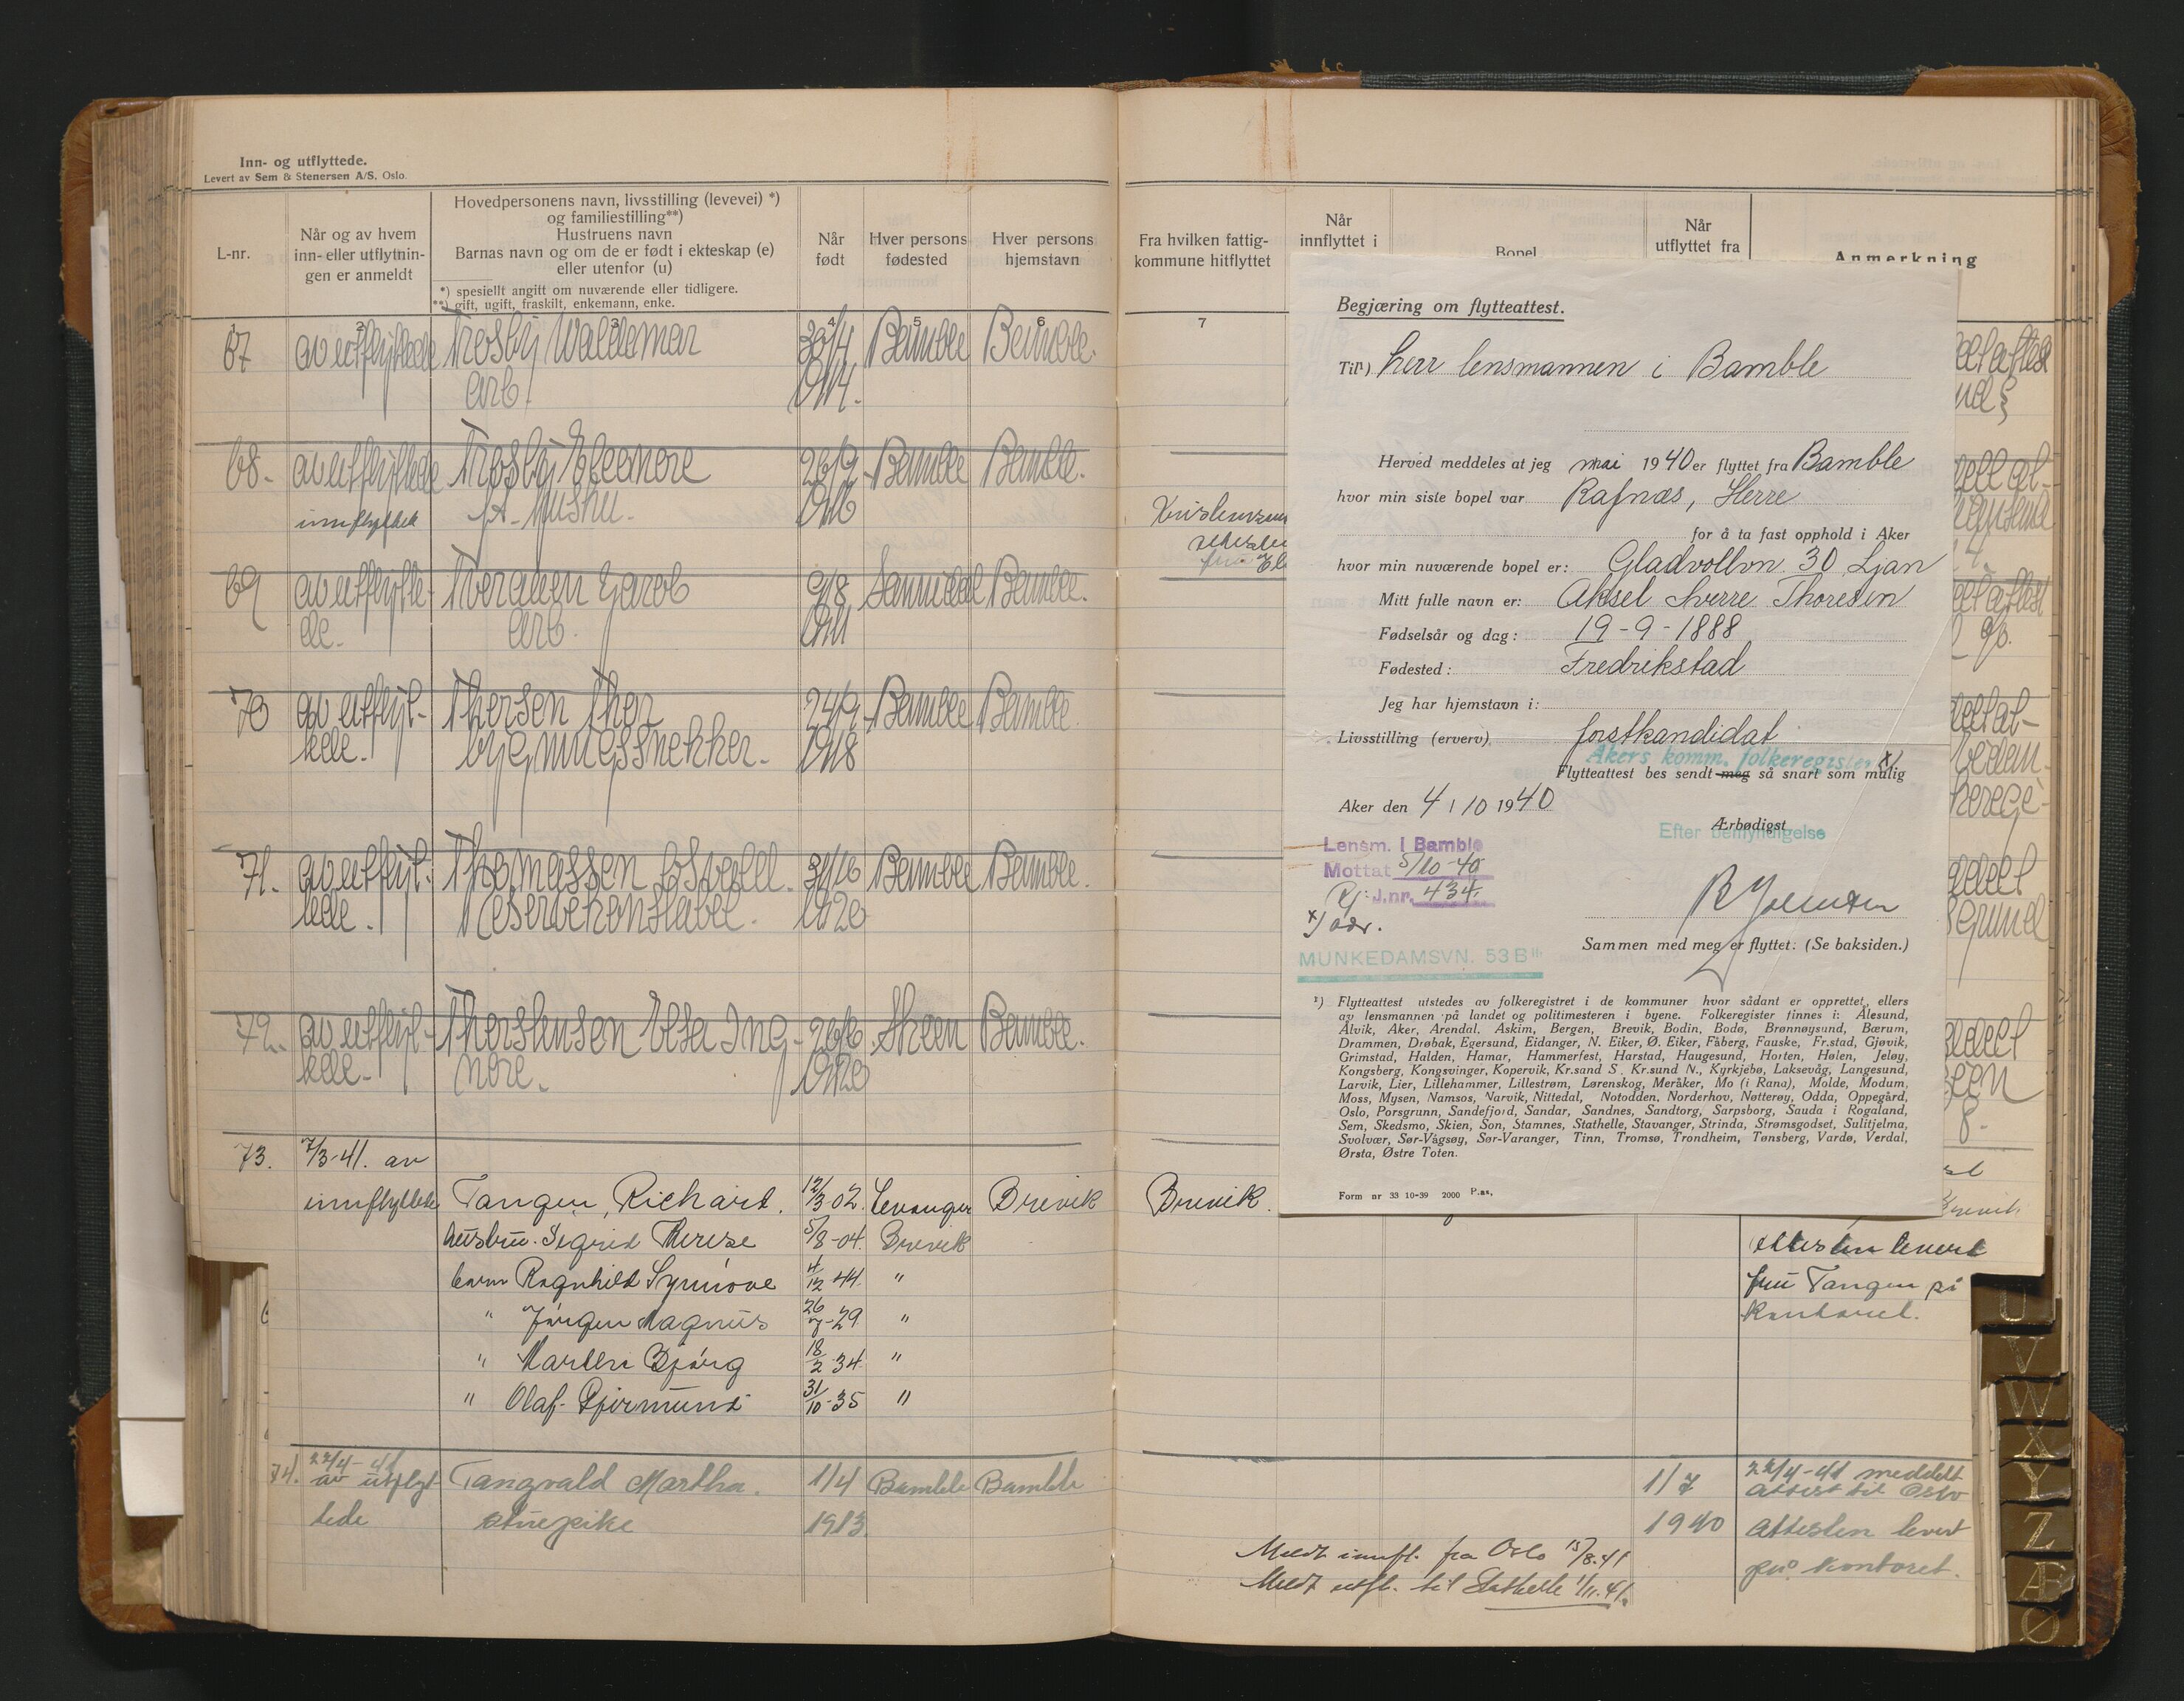 Inn- og utflyttede.
Levert av Sem & Stenersen A/S, Oslo.
L-nr.
Når og av hvem
inn- eller utflytnin-
gen er anmeldt
Hovedpersonens navn, livsstilling (levevei) *)
og familiestilling**)
Hustruens navn
Barnas navn og om de er født i ekteskap (e)
eller utenfor (u)
*) spesiellt angitt om nuværende eller tidligere.
**) gift, ugift, fraskilt, enkemann, enke.
Når
født
Hver persons
fødested
Hver persons
hjemstavn
1 2 3 4 5 6
67 av utflyttede Trosby Waldemar 30/4 Bamble Bamble.
arb. 1914.
68. av utflyttede Trosby Eleonore 26/9 Bamble Bamble.
innflyttet 1916
69 av utflytte- Jacob 9/8 Sannidal Bamble.
de. arb. 1911
70 av utflyt- Thorsen Thor 24/9 Bamble Bamble.
tede. bygningssnekker. 1918
71. av utflyt- Thomassen Osvald. 31/10 Bamble Bamble.
tede. Reservekonstabel. 1920
72. av utflyt- Thorstensen Elsa Ing- 26/6 Skien Bamble.
tede. nore. 1920
73. 7/3-41. av
innflyttede Tangen, Richard. 12/3 02. Levanger Brevik
hustru. Sigrid Therese 5/8-04. Brevik
barn Ragnhild Synnöve 4/12 44. "
" Jörgen Magnus 26/7-29 "
" Marten Björg 18/2 34. "
" Olaf 31/10-35 "
74. 22/4-41
av utflyt- Tangvald Martha. 1/4 Bamble Bamble
tede stuepike 1913.
Fra hvilken fattig-
kommune hitflyttet
Når
innflyttet i
Bopel
Når
utflyttet fra
Anmerkning
7
Begjæring om flytteattest.
Til¹) Herr lensmannen i Bamble
Herved meddeles at jeg mai 1940 er flyttet fra Bamble
hvor min siste bopel var Rafnæs, Herre
for å ta fast opphold i Aker
hvor min nuværende bopel er: Gladvollvn. 30 Ljan
Mitt fulle navn er: Aksel Sverre Thoresen
Fødselsår og dag: 19-9-1888
Fødested: Fredrikstad
Jeg har hjemstavn i:
Livsstilling (erverv) forstkandidat
Akers komm. folkeregister x)
Flytteattest bes sendt meg så snart som mulig
Aker den 4/10 1940
Ærbødigst
Efter bemyndigelse
Lensm. i Bamble
Mottat 5/10-40
J.nr. 434.
x) adr.
MUNKEDAMSVN. 53 B II.
Sammen med meg er flyttet: (Se baksiden.)
¹) Flytteattest utstedes av folkeregistret i de kommuner hvor sådant er opprettet, ellers
av lensmannen på landet og politimesteren i byene. Folkeregister finnes i: Ålesund,
Ålvik, Aker, Arendal, Askim, Bergen, Brevik, Bodin, Bodø, Brønnøysund, Bærum,
Drammen, Drøbak, Egersund, Eidanger, N. Eiker, Ø. Eiker, Fåberg, Fauske, Fr.stad, Gjøvik,
Grimstad, Halden, Hamar, Hammerfest, Harstad, Haugesund, Horten, Hølen, Jeløy,
Kongsberg, Kongsvinger, Kopervik, Kr.sand S., Kr.sund N., Kyrkjebø, Laksevåg, Langesund,
Larvik, Lier, Lillehammer, Lillestrøm, Lørenskog, Meråker, Mo (i Rana), Molde, Modum,
Moss, Mysen, Namsos, Narvik, Nittedal, Notodden, Norderhov, Nøtterøy, Odda, Oppegård,
Oslo, Porsgrunn, Sandefjord, Sandar, Sandnes, Sandtorg, Sarpsborg, Sauda i Rogaland,
Sem, Skedsmo, Skien, Son, Stamnes, Stathelle, Stavanger, Strinda, Strømsgodset, Sulitjelma,
Svolvær, Sør-Vågsøy, Sør-Varanger, Tinn, Tromsø, Trondheim, Tønsberg, Vardø, Verdal,
Ørsta, Østre Toten.
Form nr 33 10-39 2000 P.as.
Brevik.
Attesten levert
fru Tangen på
kontoret.
1/7 22/4-41 meddelt
attest til Oslo
1940 attesten levert
på kontoret.
Meldt innfl. fra Oslo 15/8.41
Meldt utfl. til Stathelle 1/11.41.
U
V
W
X
Y
Z
Æ
Ø